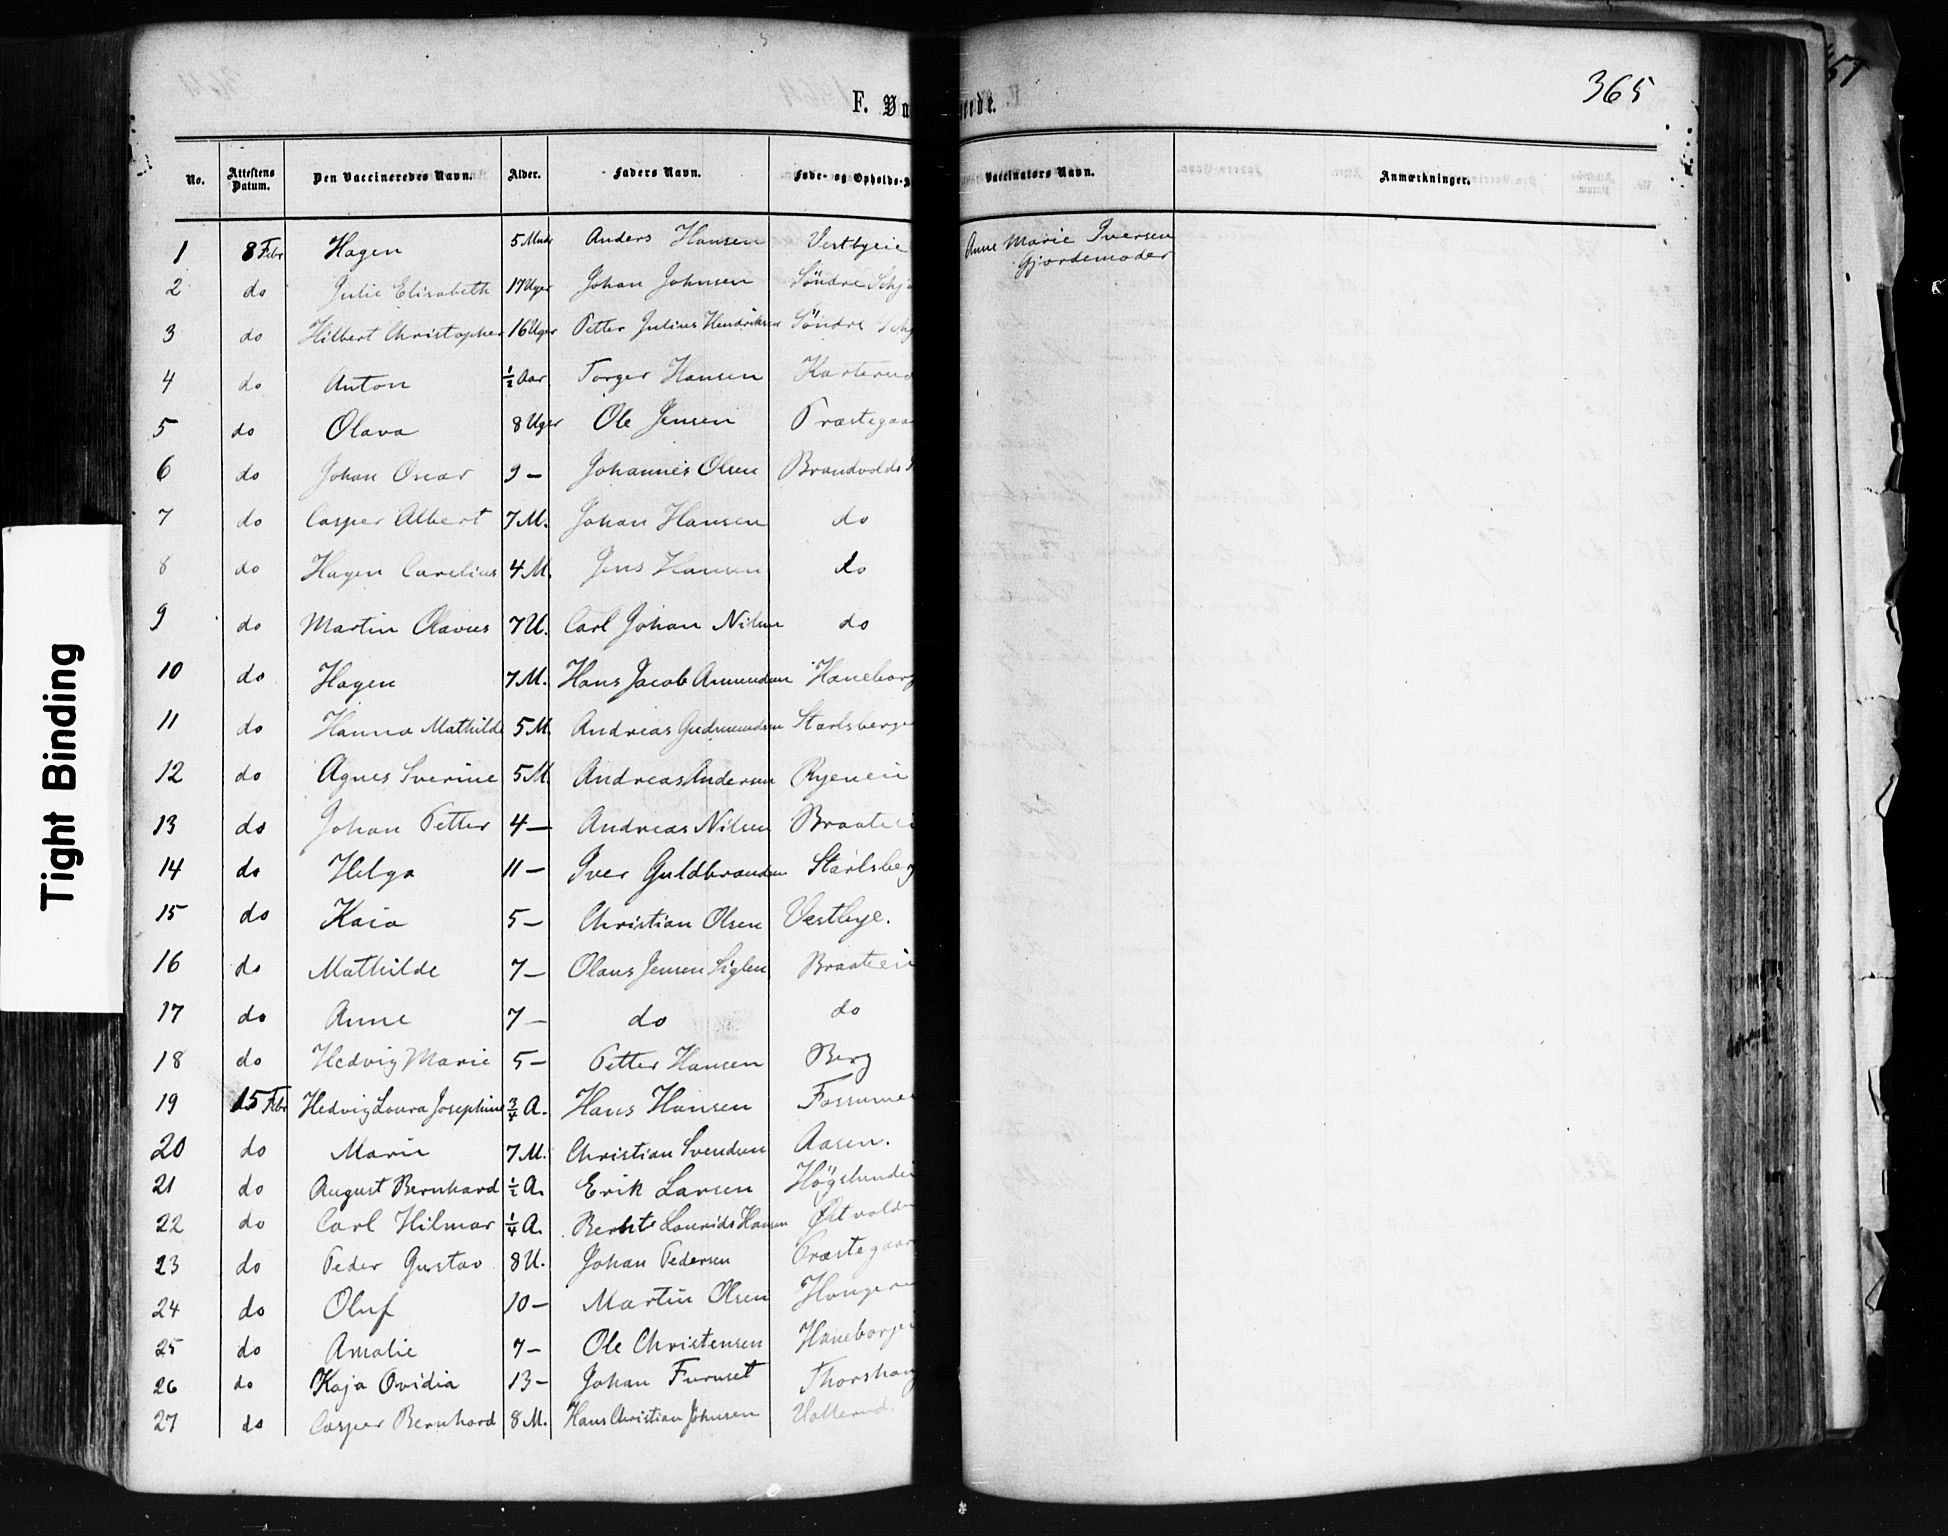 365
57
F. Va rede.
No. Attestens Datum. Den Vaccineredes Navn. Alder. Faders Navn. Føde- og Opholds- Vaccinators Navn. Anmærkninger.
1 8 Febr Hagen 5 Mndr Anders Hansen Vestbyeie Anne Marie Iversen
Gjordemoder
2 do Julie Elisabeth 17 Uger Johan Johnsen Söndre Schj
3 do Hilbert Christopher 16 Uger Petter Julius Hendriksen Söndre Schj
4 do Anton ½ Aar Torger Hansen Karterud
5 do Olava 8 Uger Ole Jensen Præstegaar
6 do Johan Oscar 9 — Johannes Olsen Brandvolds
7 do Casper Albert 7 M. Johan Hansen do
8 do Hagen Carelius 4 M. Jens Hansen do
9 do Martin Olavus 7 U. Carl Johan Nilsen do
10 do Hagen 7 M. Hans Jacob Amundsen Haneborg
11 do Hanna Mathilde 5 M. Andreas Gudmundsen Starlsberge
12 do Agnes Sverine 5 M. Andreas Andersen Ryeneie
13 do Johan Petter 4 — Andreas Nilsen Braatei
14 do Helga 11 — Iver Guldbrandsen Starlsberg
15 do Kaia 5 — Christian Olsen Vestbye.
16 do Mathilde 7 — Olaus Jensen Siglen Braatei
17 do Anne 7 — do do
18 do Hedvig Marie 5 — Petter Hansen Berg
19 15 Febr Hedvig Laura Josephine ¾ A. Hans Hansen Fossume
20 do Marie 7 M. Christian Svendsen Aasen.
21 do August Bernhard ½ A. Erik Larsen Höglundei
22 do Carl Hilmar ¼ A. Laurids Hansen Østvolde
23 do Peder Gustav 8 U. Johan Pedersen Præstegaar
24 do Oluf 10 — Martin Olsen Hougere
25 do Amalie 7 — Ole Christensen Haneborgei
26 do Kaja Ovidia 13 — Johan Furuset Thorshaug
27 do Casper Bernhard 8 M. Hans Christian Johnsen Vatterud.
Tight Binding